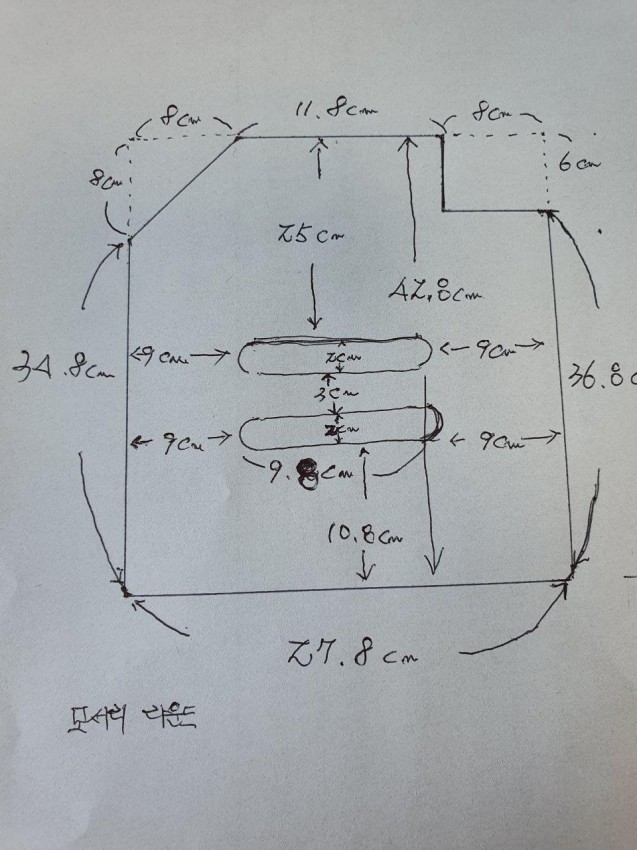 8cm 11.8cm 8cm
8cm 6cm
25cm
42.8cm
9cm 2cm 9cm
34.8cm 3cm 36.8c
9cm 2cm 9cm
9.8cm
10.8cm
27.8cm
모서리 라운드